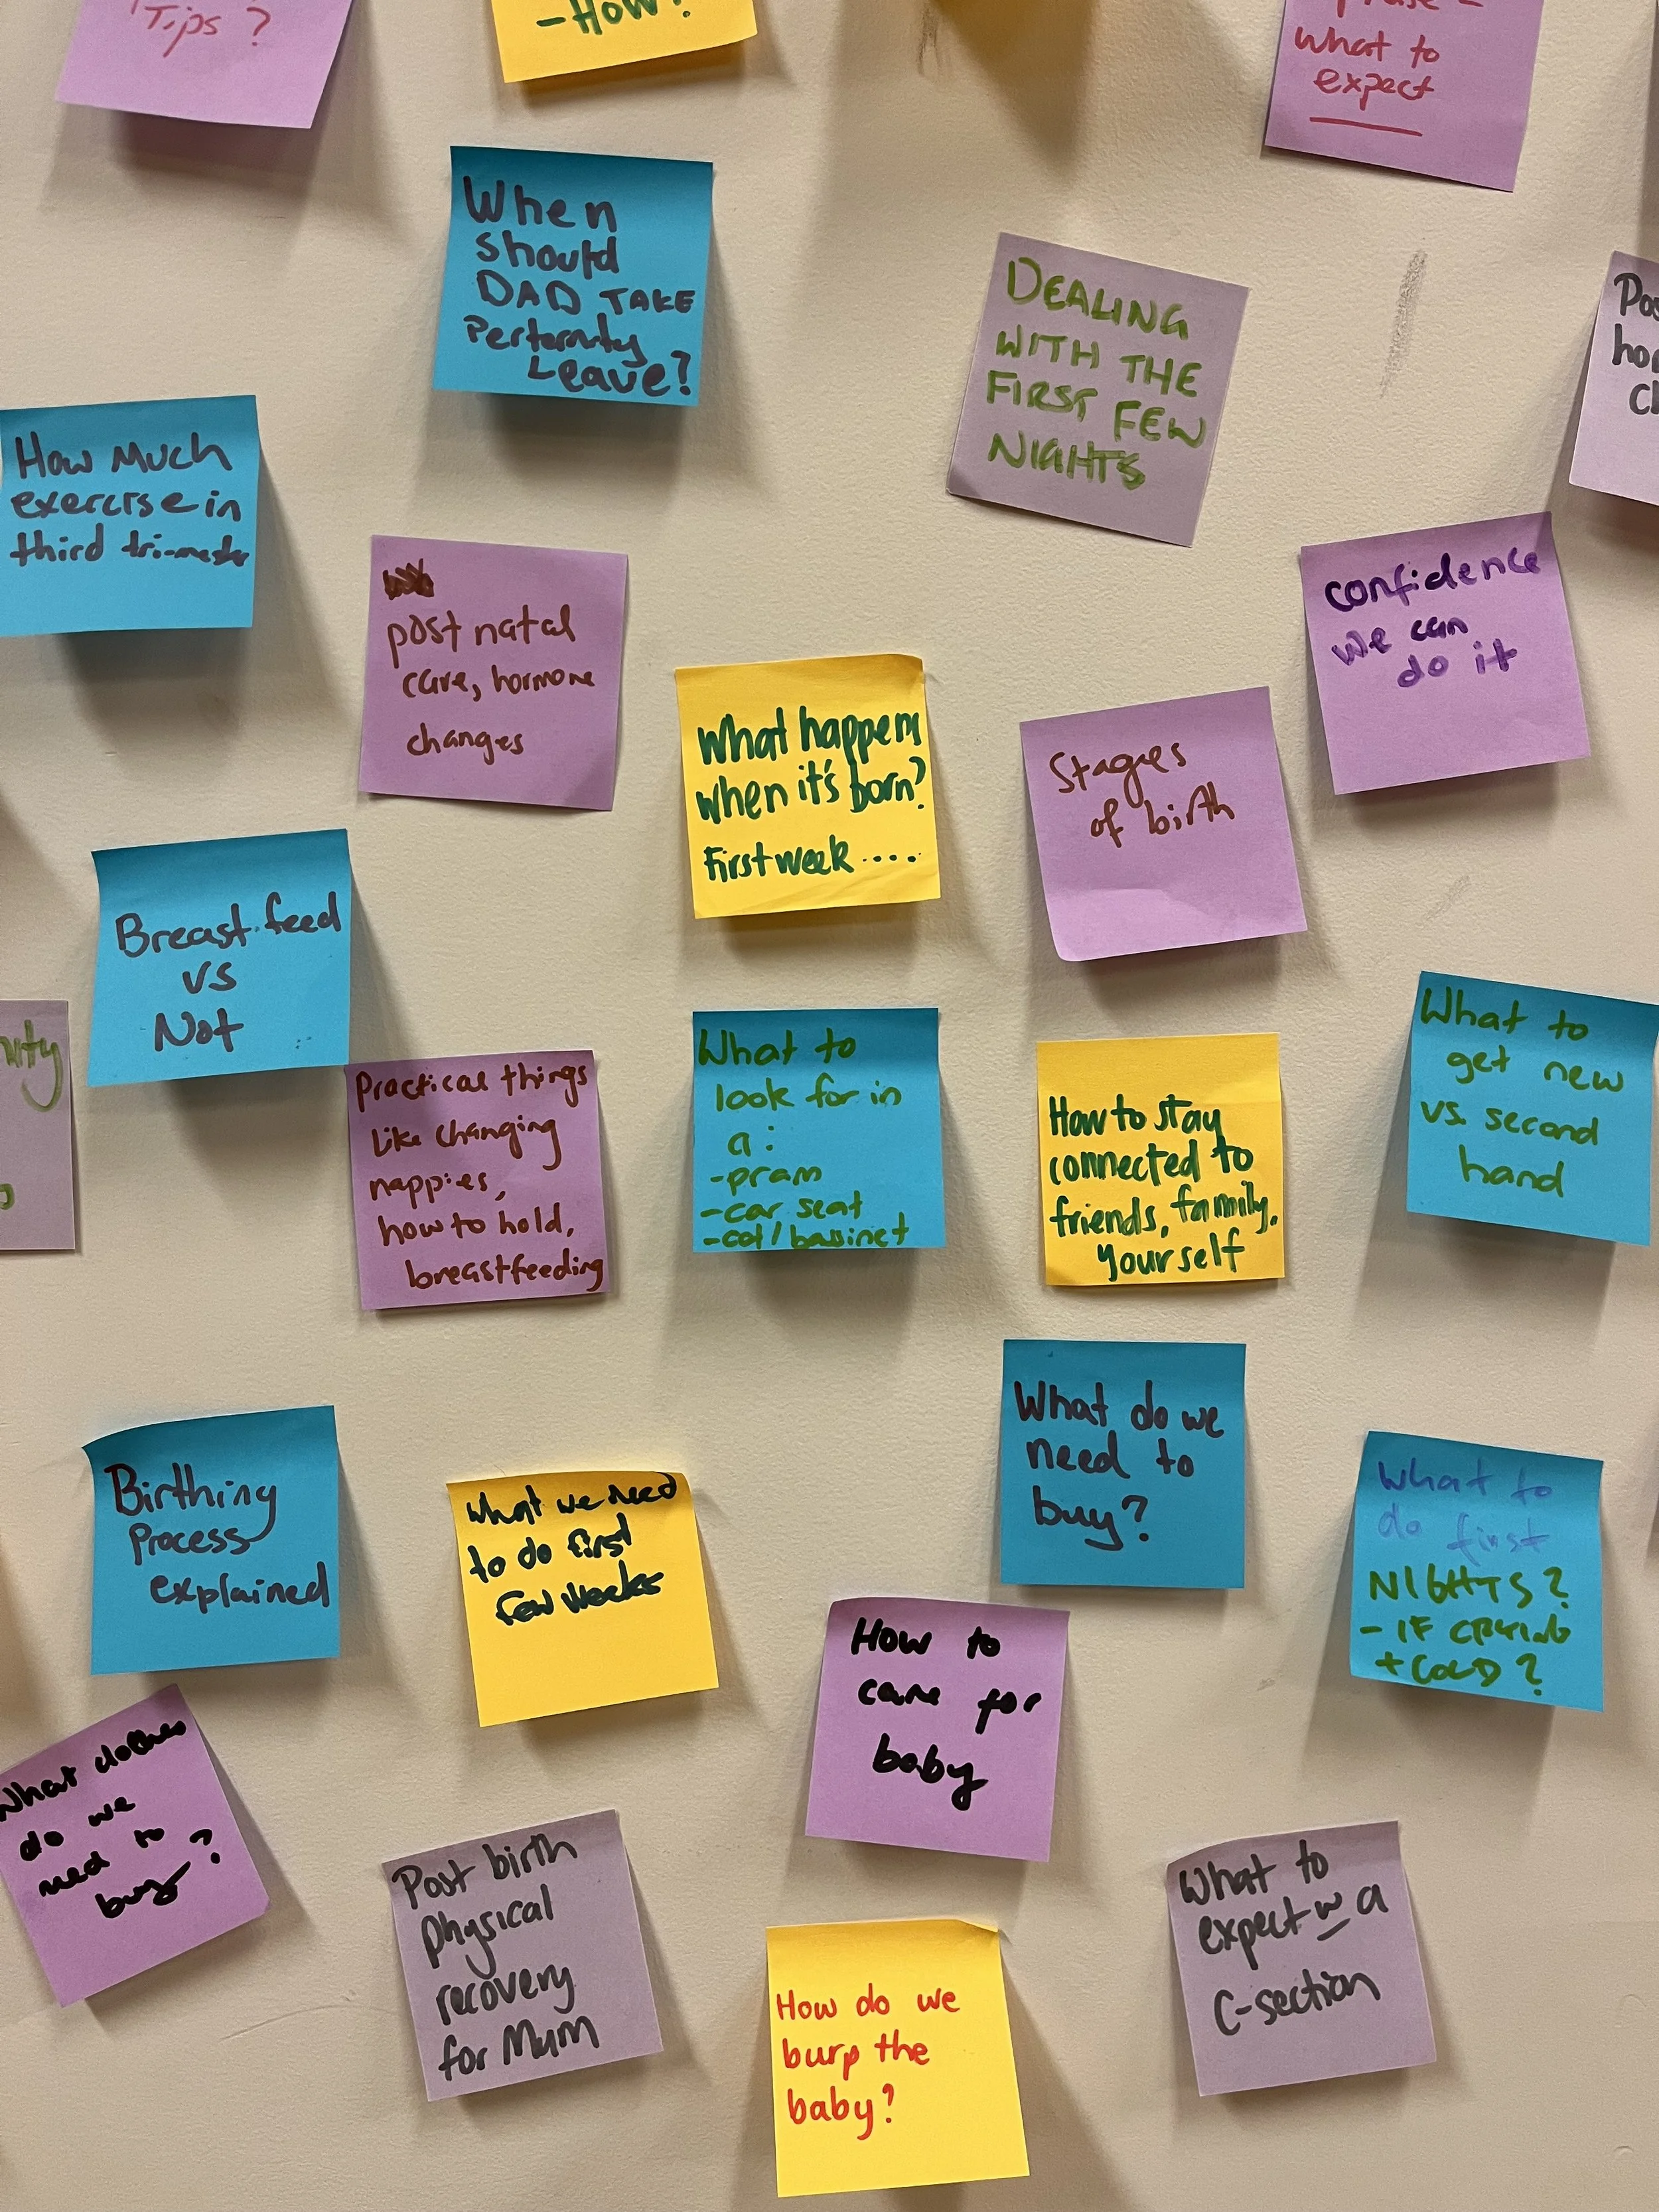 Tips?
-How?
What to
expect
When
should
DAD TAKE
Perternity
Leave?
DEALING
WITH THE
FIRST FEW
NIGHTS
How Much
exercise in
third tri-mester
post natal
care, hormone
changes
confidence
we can
do it
What happens
when it's born?
First week ....
Stages
of birth
Breast feed
vs
Not
Practical things
like changing
nappies,
how to hold,
breastfeeding
What to
look for in
a :
-pram
-car seat
-cot/bassinet
How to stay
connected to
friends, family,
yourself
What to
get new
vs. second
hand
What do we
need to
buy?
Birthing
Process
explained
What we need
to do first
few weeks
What to
do first
NIGHTS?
- IF CRYING
+ COLD?
How to
care for
baby
What clothes
do we
need to
buy?
Post birth
physical
recovery
for Mum
What to
expect w a
C-section
How do we
burp the
baby?